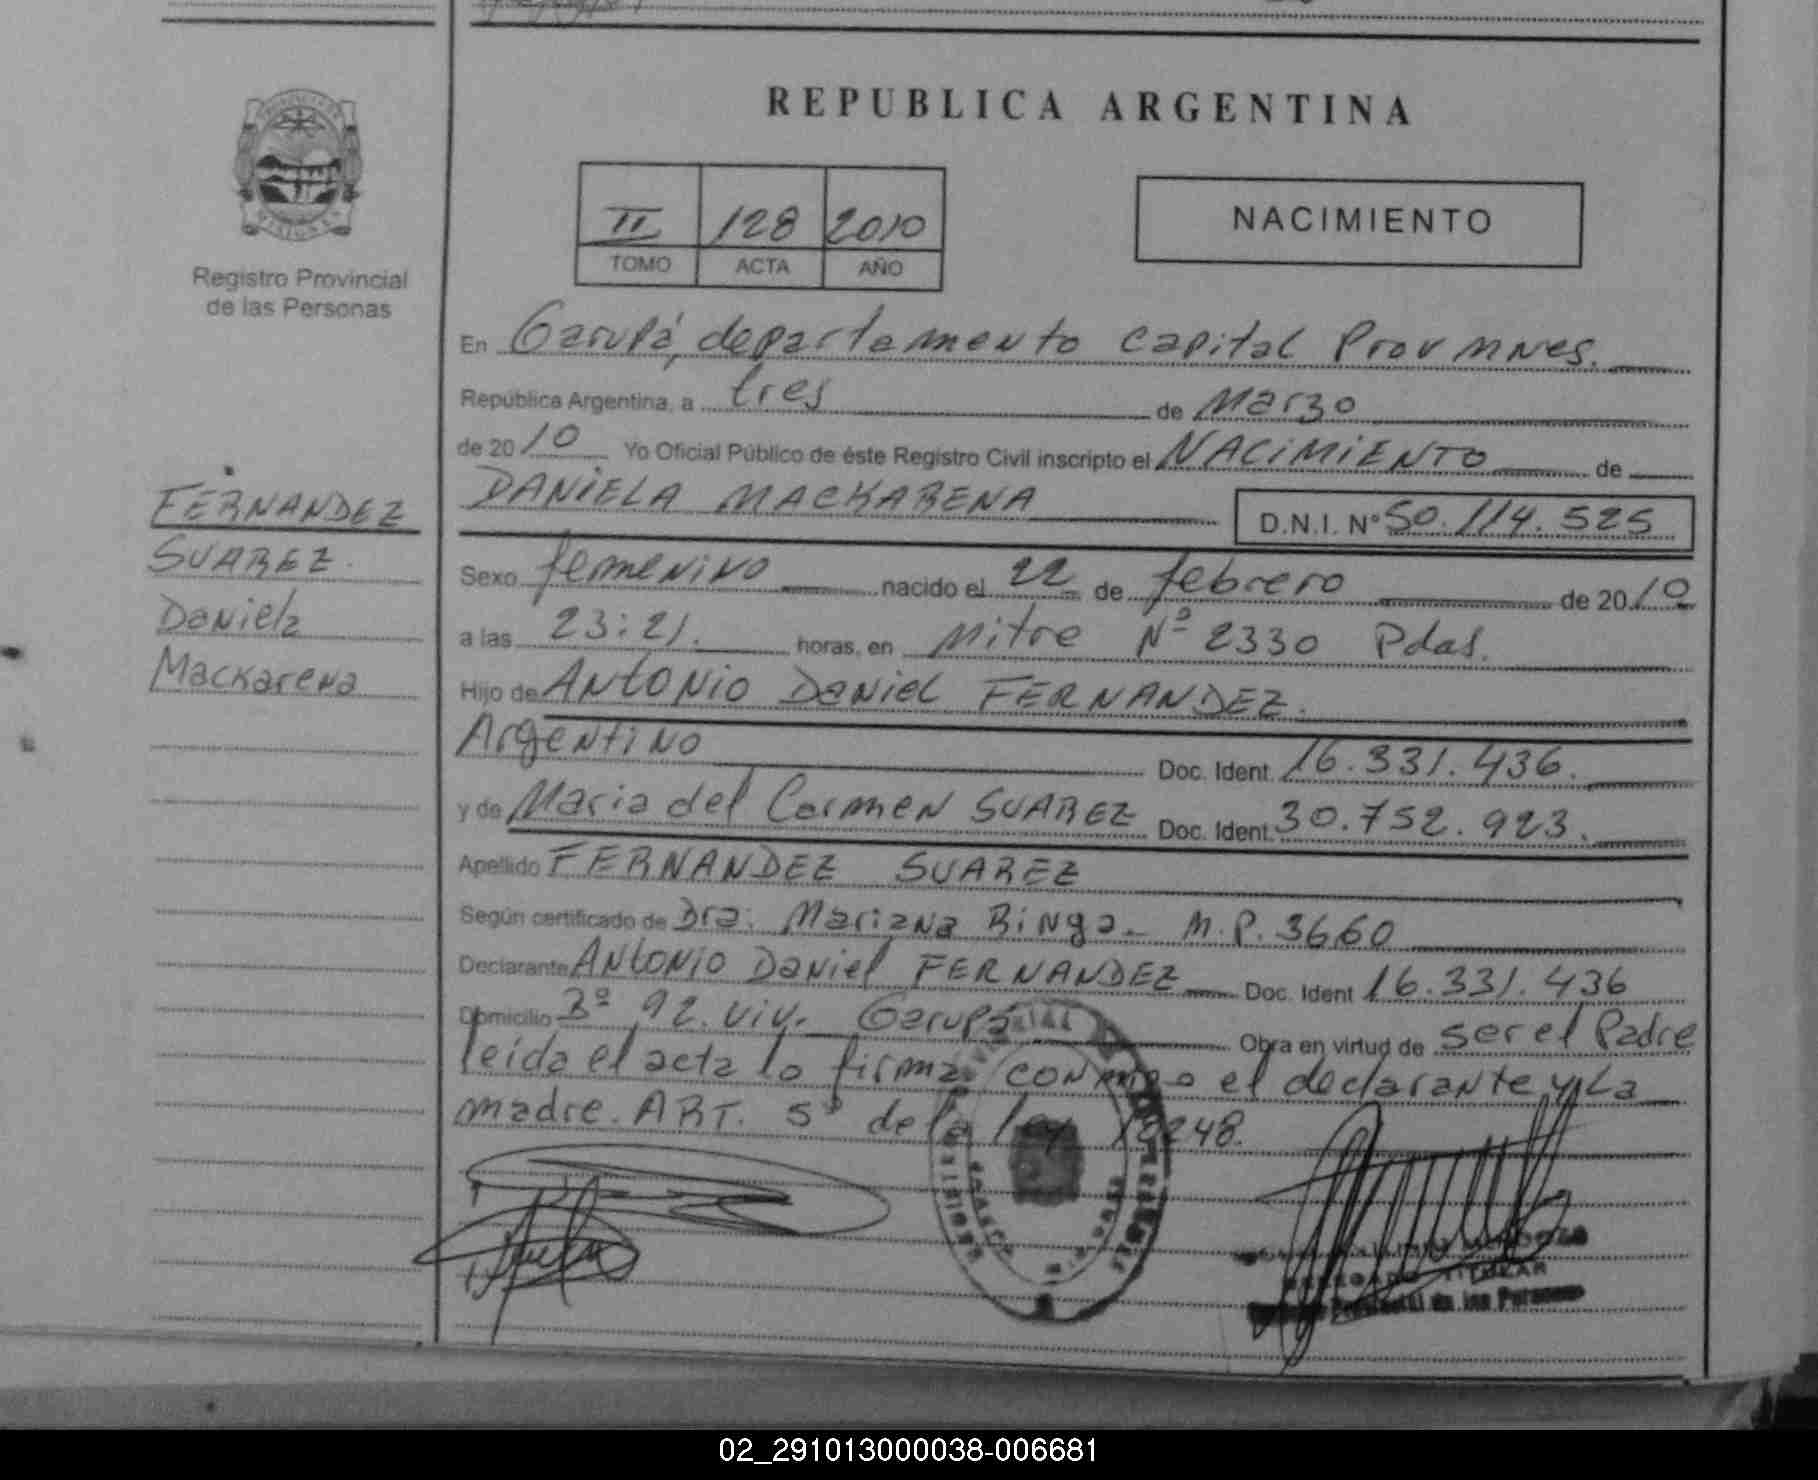 REPUBLICA ARGENTINA
II 128 2010
TOMO ACTA AÑO
NACIMIENTO
Registro Provincial
de las Personas
FERNANDEZ
SUAREZ.
Daniela
Mackarena
En Garupá, departamento Capital Prov Mnes.
República Argentina, a tres de Marzo
de 2010 Yo Oficial Público de éste Registro Civil inscripto el NACIMIENTO de
DANIELA MACKARENA D.N.I. N° 50.114.525
Sexo femenino nacido el 22 de febrero de 2010
a las 23:21. horas, en Mitre Nº 2330 Pdas.
Hijo de Antonio Daniel FERNANDEZ.
Argentino Doc. Ident. 16.331.436.
y de Maria del Carmen SUAREZ Doc. Ident. 30.752.923.
Apellido FERNANDEZ SUAREZ
Según certificado de Dra. Mariana Binga. M.P. 3660
Declarante Antonio Daniel FERNANDEZ Doc. Ident 16.331.436
Domicilio Bº 92. viv. Garupá Obra en virtud de ser el Padre
leida el acta lo firma conmigo el declarante y La
madre. ART. 5º de la ley 18248.
TITULAR
Provincial de las Personas
02_291013000038-006681